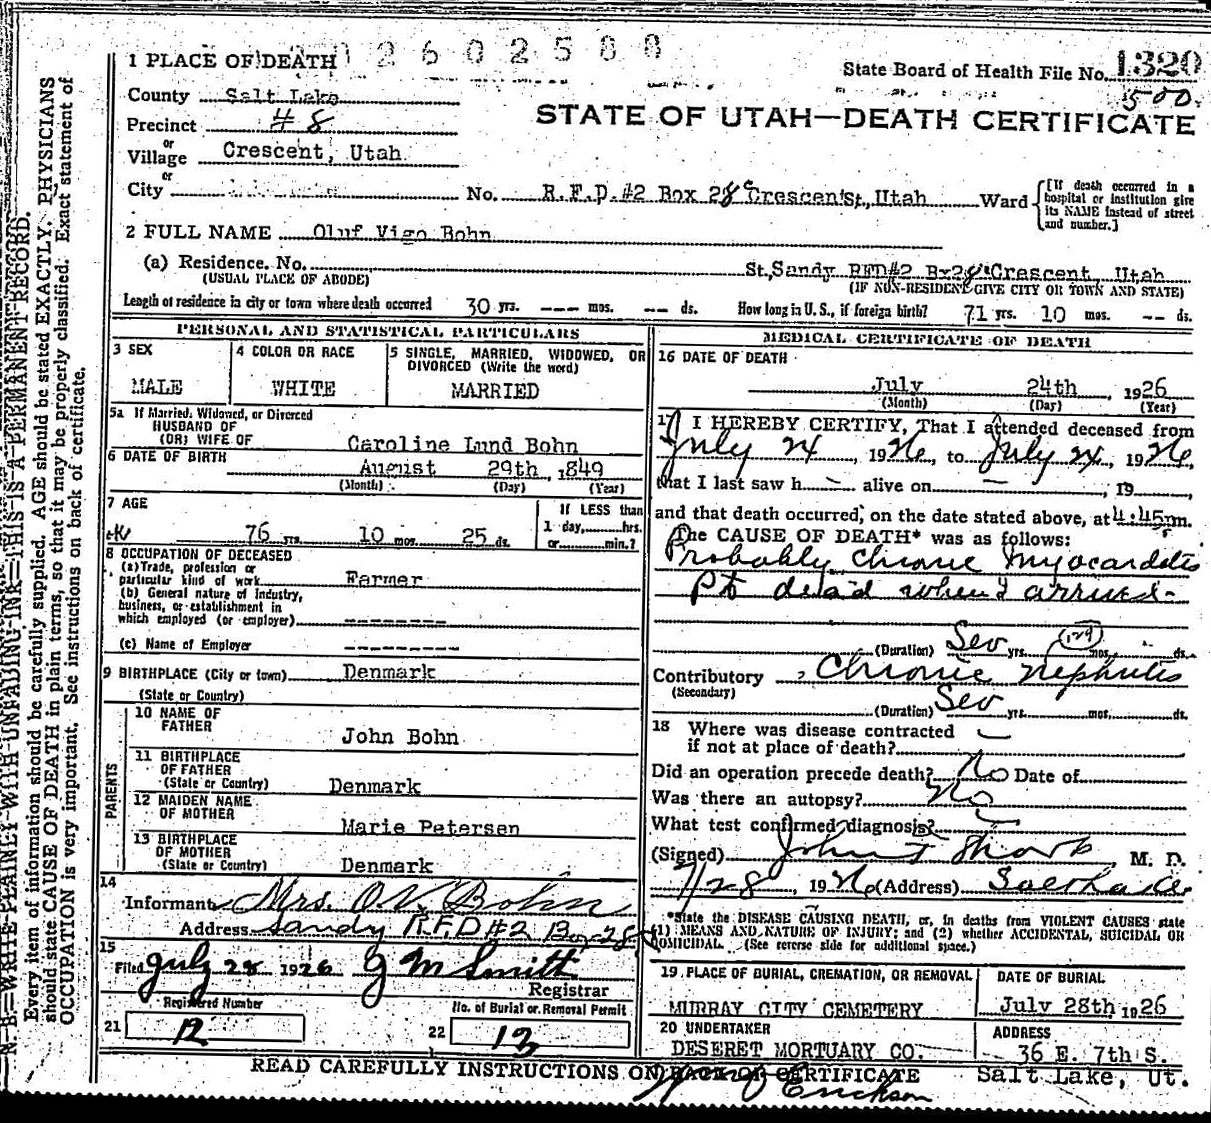 2602588
1 PLACE OF DEATH
State Board of Health File No. 1320
500.
County Salt Lake
STATE OF UTAH—DEATH CERTIFICATE
Precinct #8
or
Village Crescent, Utah
or
City No. R.F.D.#2 Box 28 Crescent St., Utah Ward
[If death occurred in a
hospital or institution give
its NAME instead of street
and number.]
2 FULL NAME Oluf Vigo Bohn
(a) Residence. No. St, Sandy RFD#2 Bx28 Crescent, Utah
(USUAL PLACE OF ABODE) (IF NON-RESIDENT GIVE CITY OR TOWN AND STATE)
Length of residence in city or town where death occurred 30 yrs. --- mos. -- ds. How long in U. S., if foreign birth? 71 yrs. 10 mos. -- ds.
PERSONAL AND STATISTICAL PARTICULARS
3 SEX
MALE
4 COLOR OR RACE
WHITE
5 SINGLE, MARRIED, WIDOWED, OR
DIVORCED (Write the word)
MARRIED
5a If Married, Widowed, or Divorced
HUSBAND OF
(OR) WIFE OF Caroline Lund Bohn
6 DATE OF BIRTH August 29th, 1849
(Month) (Day) (Year)
7 AGE
76 yrs. 10 mos. 25 ds.
If LESS than
1 day,......hrs.
or......min.?
8 OCCUPATION OF DECEASED
(a) Trade, profession or
particular kind of work Farmer
(b) General nature of Industry,
business, or establishment in
which employed (or employer) --------
(c) Name of Employer ---------
9 BIRTHPLACE (City or town) Denmark
(State or Country)
PARENTS
10 NAME OF
FATHER John Bohn
11 BIRTHPLACE
OF FATHER
(State or Country) Denmark
12 MAIDEN NAME
OF MOTHER Marie Petersen
13 BIRTHPLACE
OF MOTHER
(State or Country) Denmark
14
Informant Mrs. O V. Bohn
Address Sandy R.F.D #2 Box 28
15
Filed July 28 1926 J M Smith
Registrar
Registered Number
21 12
No. of Burial or Removal Permit
22 13
MEDICAL CERTIFICATE OF DEATH
16 DATE OF DEATH
July 24th, 1926
(Month) (Day) (Year)
17 I HEREBY CERTIFY, That I attended deceased from
July 24, 1926, to July 24, 1926,
that I last saw h — alive on —, 19
and that death occurred, on the date stated above, at 4:45 p m.
The CAUSE OF DEATH* was as follows:
Probably Chronic Myocarditis
Pt dead when I arrived-
(129)
(Duration) Sev yrs. mos. ds.
Contributory Chronic Nephritis
(Secondary)
(Duration) Sev yrs. mos. ds.
18 Where was disease contracted
if not at place of death? —
Did an operation precede death? No Date of
Was there an autopsy? No
What test confirmed diagnosis? —
(Signed) John T Sharp, M. D.
7/28, 1926 (Address) Salt Lake
*State the DISEASE CAUSING DEATH, or, in deaths from VIOLENT CAUSES state
(1) MEANS AND NATURE OF INJURY; and (2) whether ACCIDENTAL, SUICIDAL OR
HOMICIDAL. (See reverse side for additional space.)
19 PLACE OF BURIAL, CREMATION, OR REMOVAL
MURRAY CITY CEMETERY
DATE OF BURIAL
July 28th 1926
20 UNDERTAKER
DESERET MORTUARY CO.
ADDRESS
36 E. 7th S.
Salt Lake, Ut.
READ CAREFULLY INSTRUCTIONS ON BACK OF CERTIFICATE
Erickson
N. B.—WRITE PLAINLY WITH UNFADING INK—THIS IS A PERMANENT RECORD.
Every item of information should be carefully supplied. AGE should be stated EXACTLY. PHYSICIANS
should state CAUSE OF DEATH in plain terms, so that it may be properly classified. Exact statement of
OCCUPATION is very important. See instructions on back of certificate.